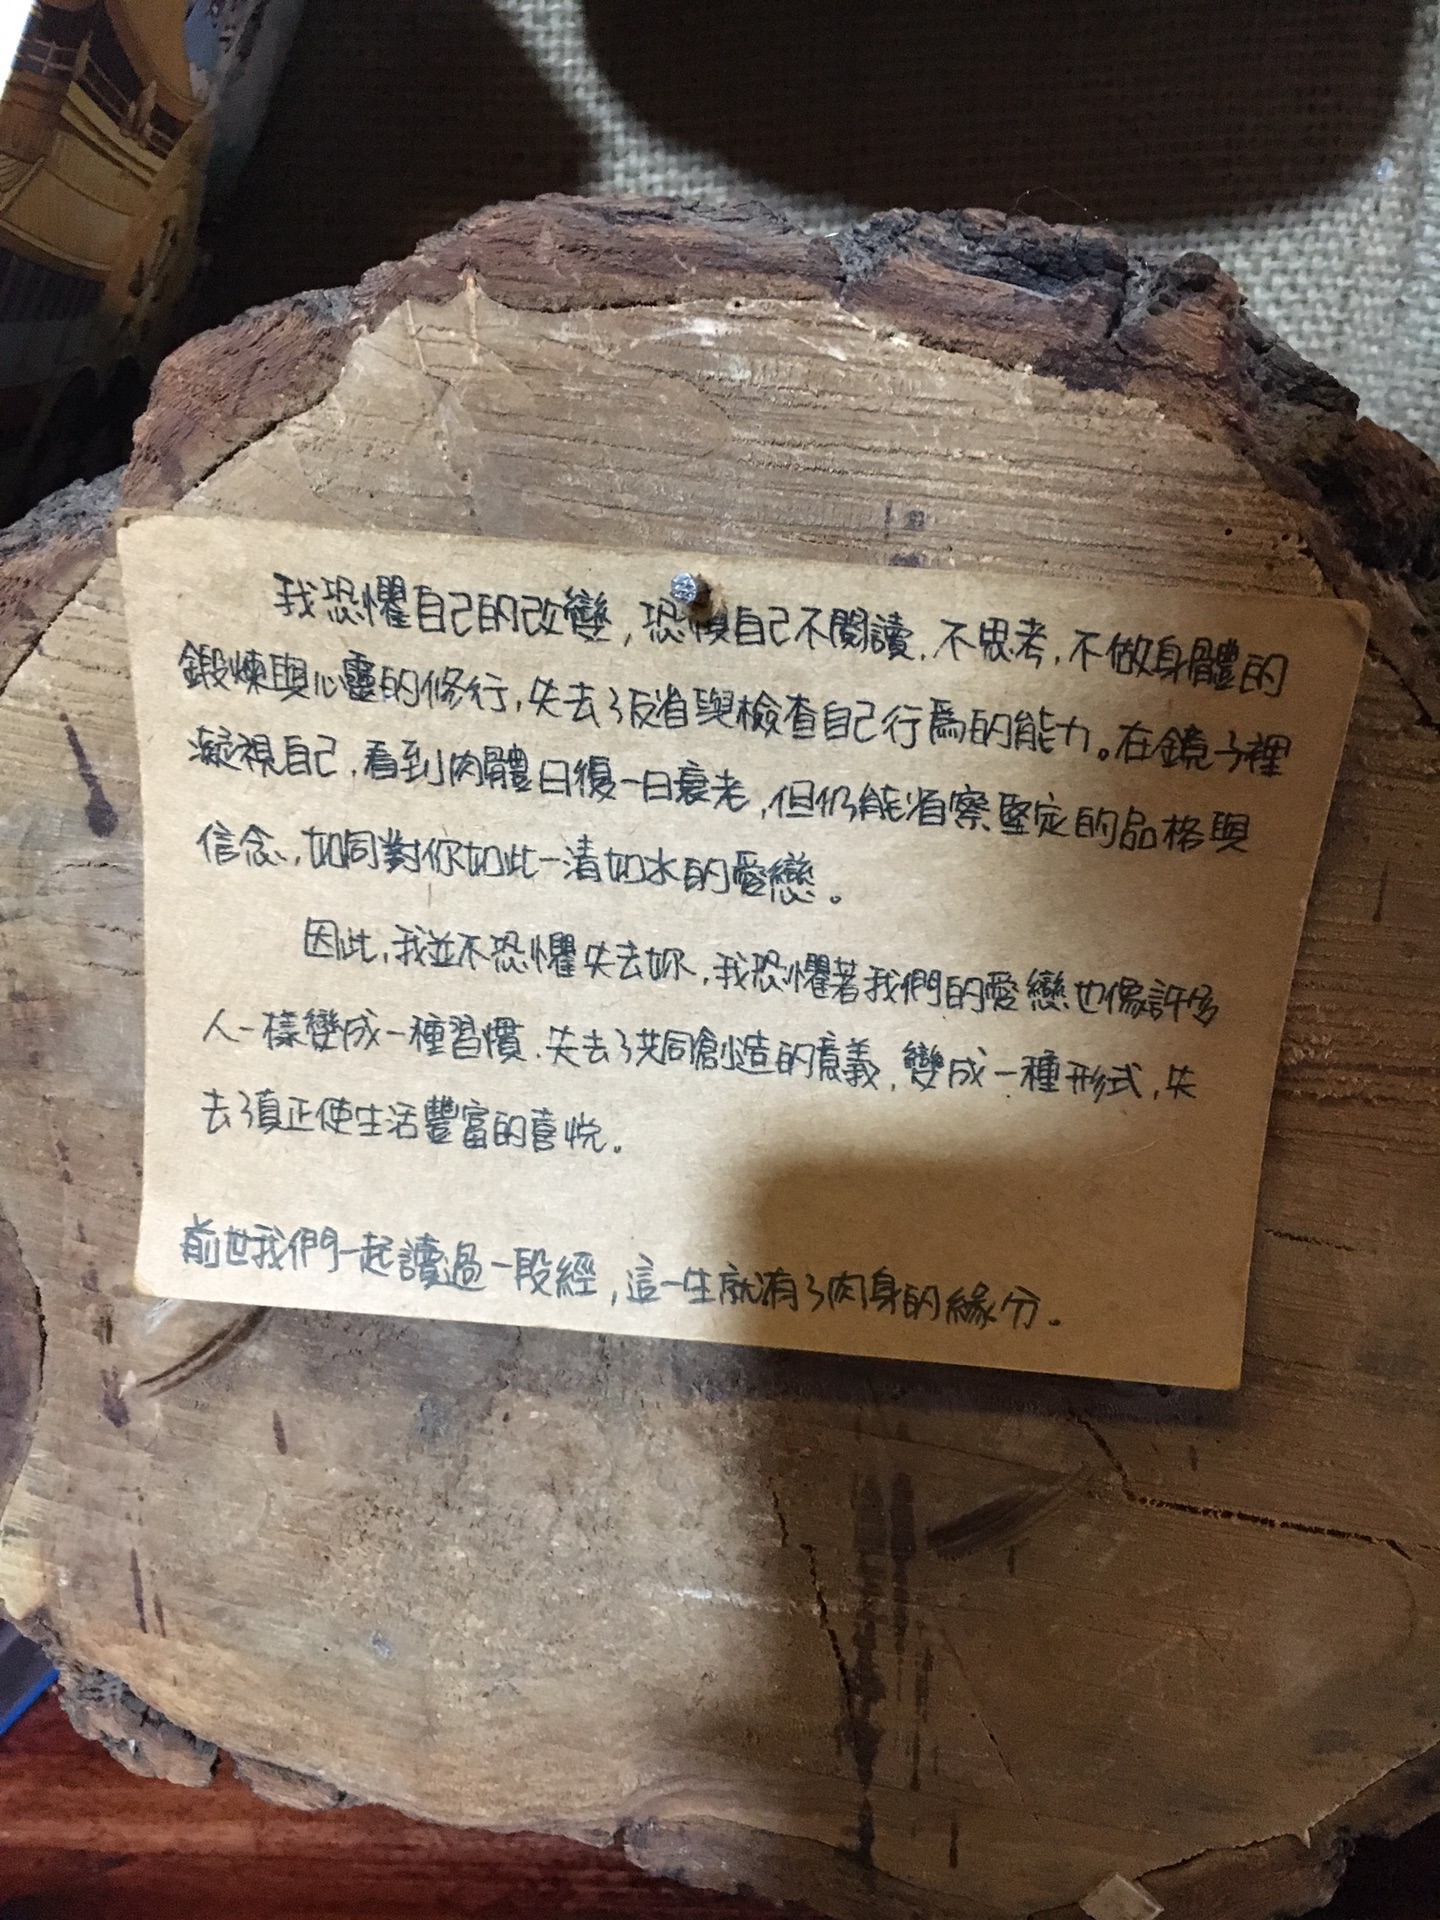 我恐懼自己的改變，恐懼自己不閱讀、不思考，不做身體的
鍛煉與心靈的修行，失去了反省與檢查自己行為的能力。在鏡子裡
凝視自己，看到肉體日復一日衰老，但仍能省察堅定的品格與
信念，如同對你如此一清如水的愛戀。
因此，我並不恐懼失去妳，我恐懼著我們的愛戀也像許多
人一樣變成一種習慣、失去了共同創造的意義，變成一種形式，失
去了真正使生活豐富的喜悅。
前世我們一起讀過一段經，這一生就有了肉身的緣分。